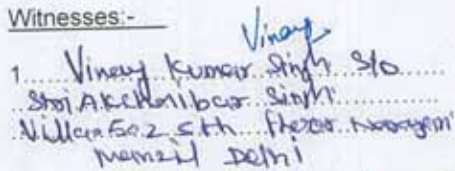 Witnesses:-
Vinay
1. Vinay Kumar Singh S/o
Shri Akchhilbar Singh
602 5th Floor Narayan
Manzil Delhi